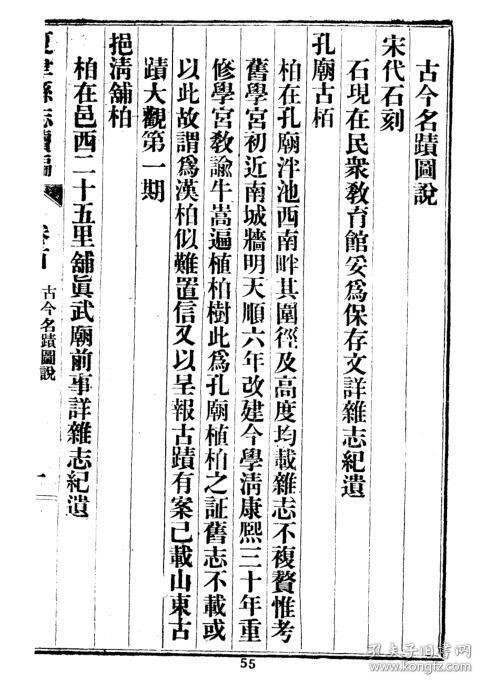 古今名蹟圖說
宋代石刻
石現在民衆教育館妥爲保存文詳雜志紀遺
孔廟古栢
柏在孔廟泮池西南畔其圍徑及高度均載雜志不複贅惟考
舊學宮初近南城牆明天順六年改建今學淸康熙三十年重
修學宮教諭牛嵩遍植柏樹此爲孔廟植柏之証舊志不載或
以此故謂爲漢柏似難置信又以呈報古蹟有案已載山東古
蹟大觀第一期
挹淸舖柏
柏在邑西二十五里舖眞武廟前事詳雜志紀遺
夏津縣志續編
卷首
古今名蹟圖說
一
55
孔夫子旧书网
www.kongfz.com